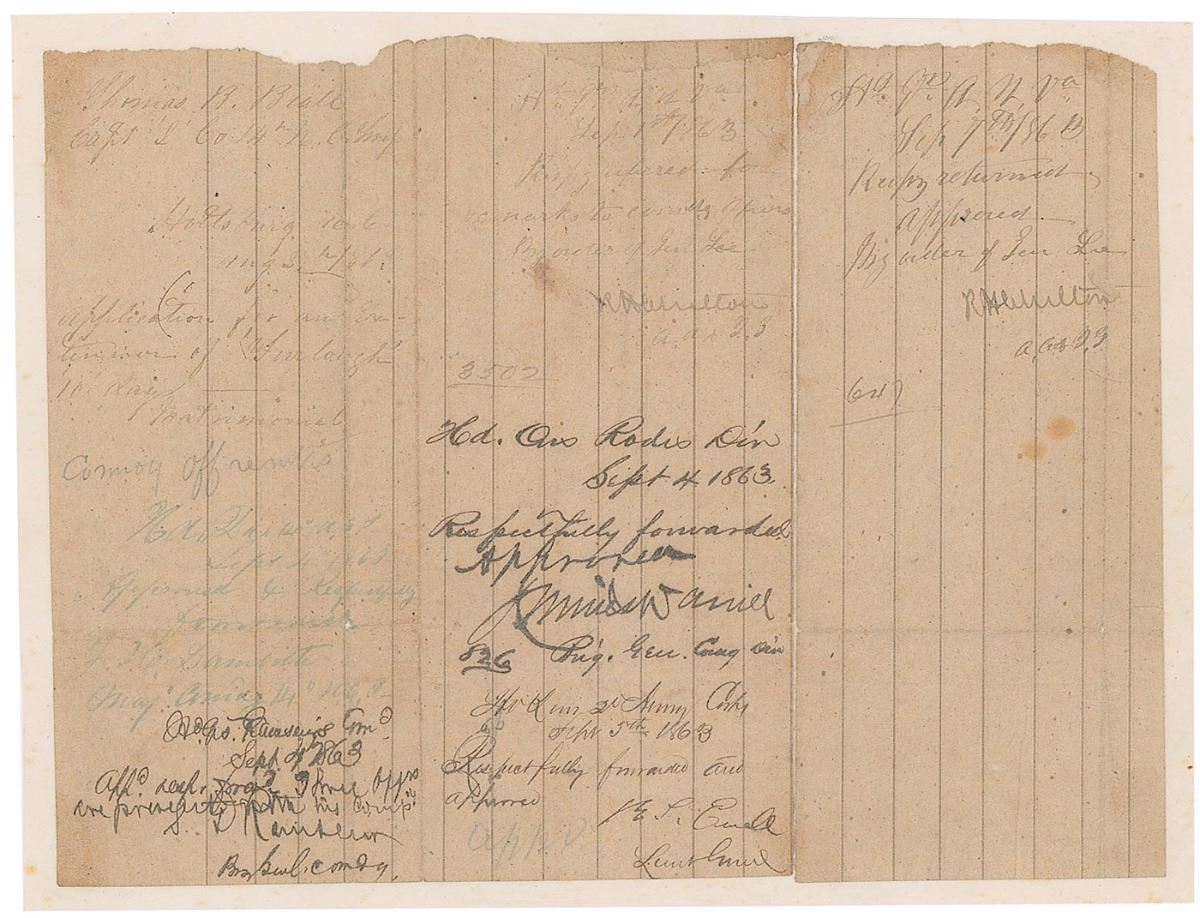 Thomas B. Beall
Capt I Co 14th N. C. Inf
Holtsburg N. C.
Aug 30th/63
Application for an Ex-
tension of "Furlough"
10 days
Matrimonial
Comdg Off remks
Hd. Qrs 14th N.C.
Sept 4th 1863
Approved & Respectfully
forwarded
Maj Comdg 14th N.C.
Hd Qrs. Ramseur's Comd
Sept 4 1863
Appd respy forwd Three Offrs
are present with his Compy
S D Ramseur
Brig Genl. comdg.
Hd Qrs A N Va
Sep /1863
Respy referred for
remarks to comdg Officers
By order of Gen Lee
R H Chilton
A. A & I. G
3507
Hd. Qrs Rodes Divn
Sept 4 1863
Respectfully forwarded
Approved
Junius Daniel
826 Brig. Gen. Comg Divn
Hd Qurs 2d Army Corps
Sept 5th 1863
Respectfully forwarded and
approved
R. S. Ewell
Lieut Genl
Appd
Hd. Qrs A N Va
Sep 7th/1863
Respy returned
approved
By order of Gen Lee
R H Chilton
A. A & I. G
647